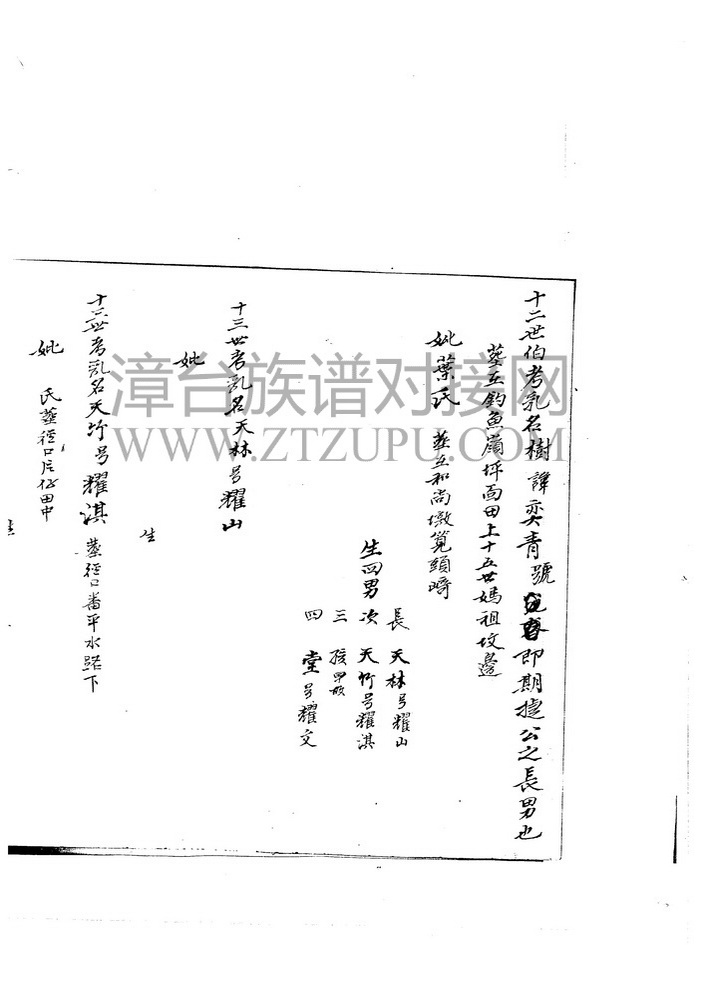 十二世伯考乳名樹諱奕青號春即期捷公之長男也
葬在釣魚崩坪面田上十五世媽祖坟邊
妣葉氏 葬在和尚墩筧頭崎
生四男
長 天林号耀山
次 天竹号耀淇
三 孩
四 堂号耀文
十三世考乳名天林号耀山
妣
生
十三世考乳名天竹号耀淇 葬徑口番平水路下
妣 氏葬徑口 田中
漳台族谱对接网
WWW.ZTZUPU.COM